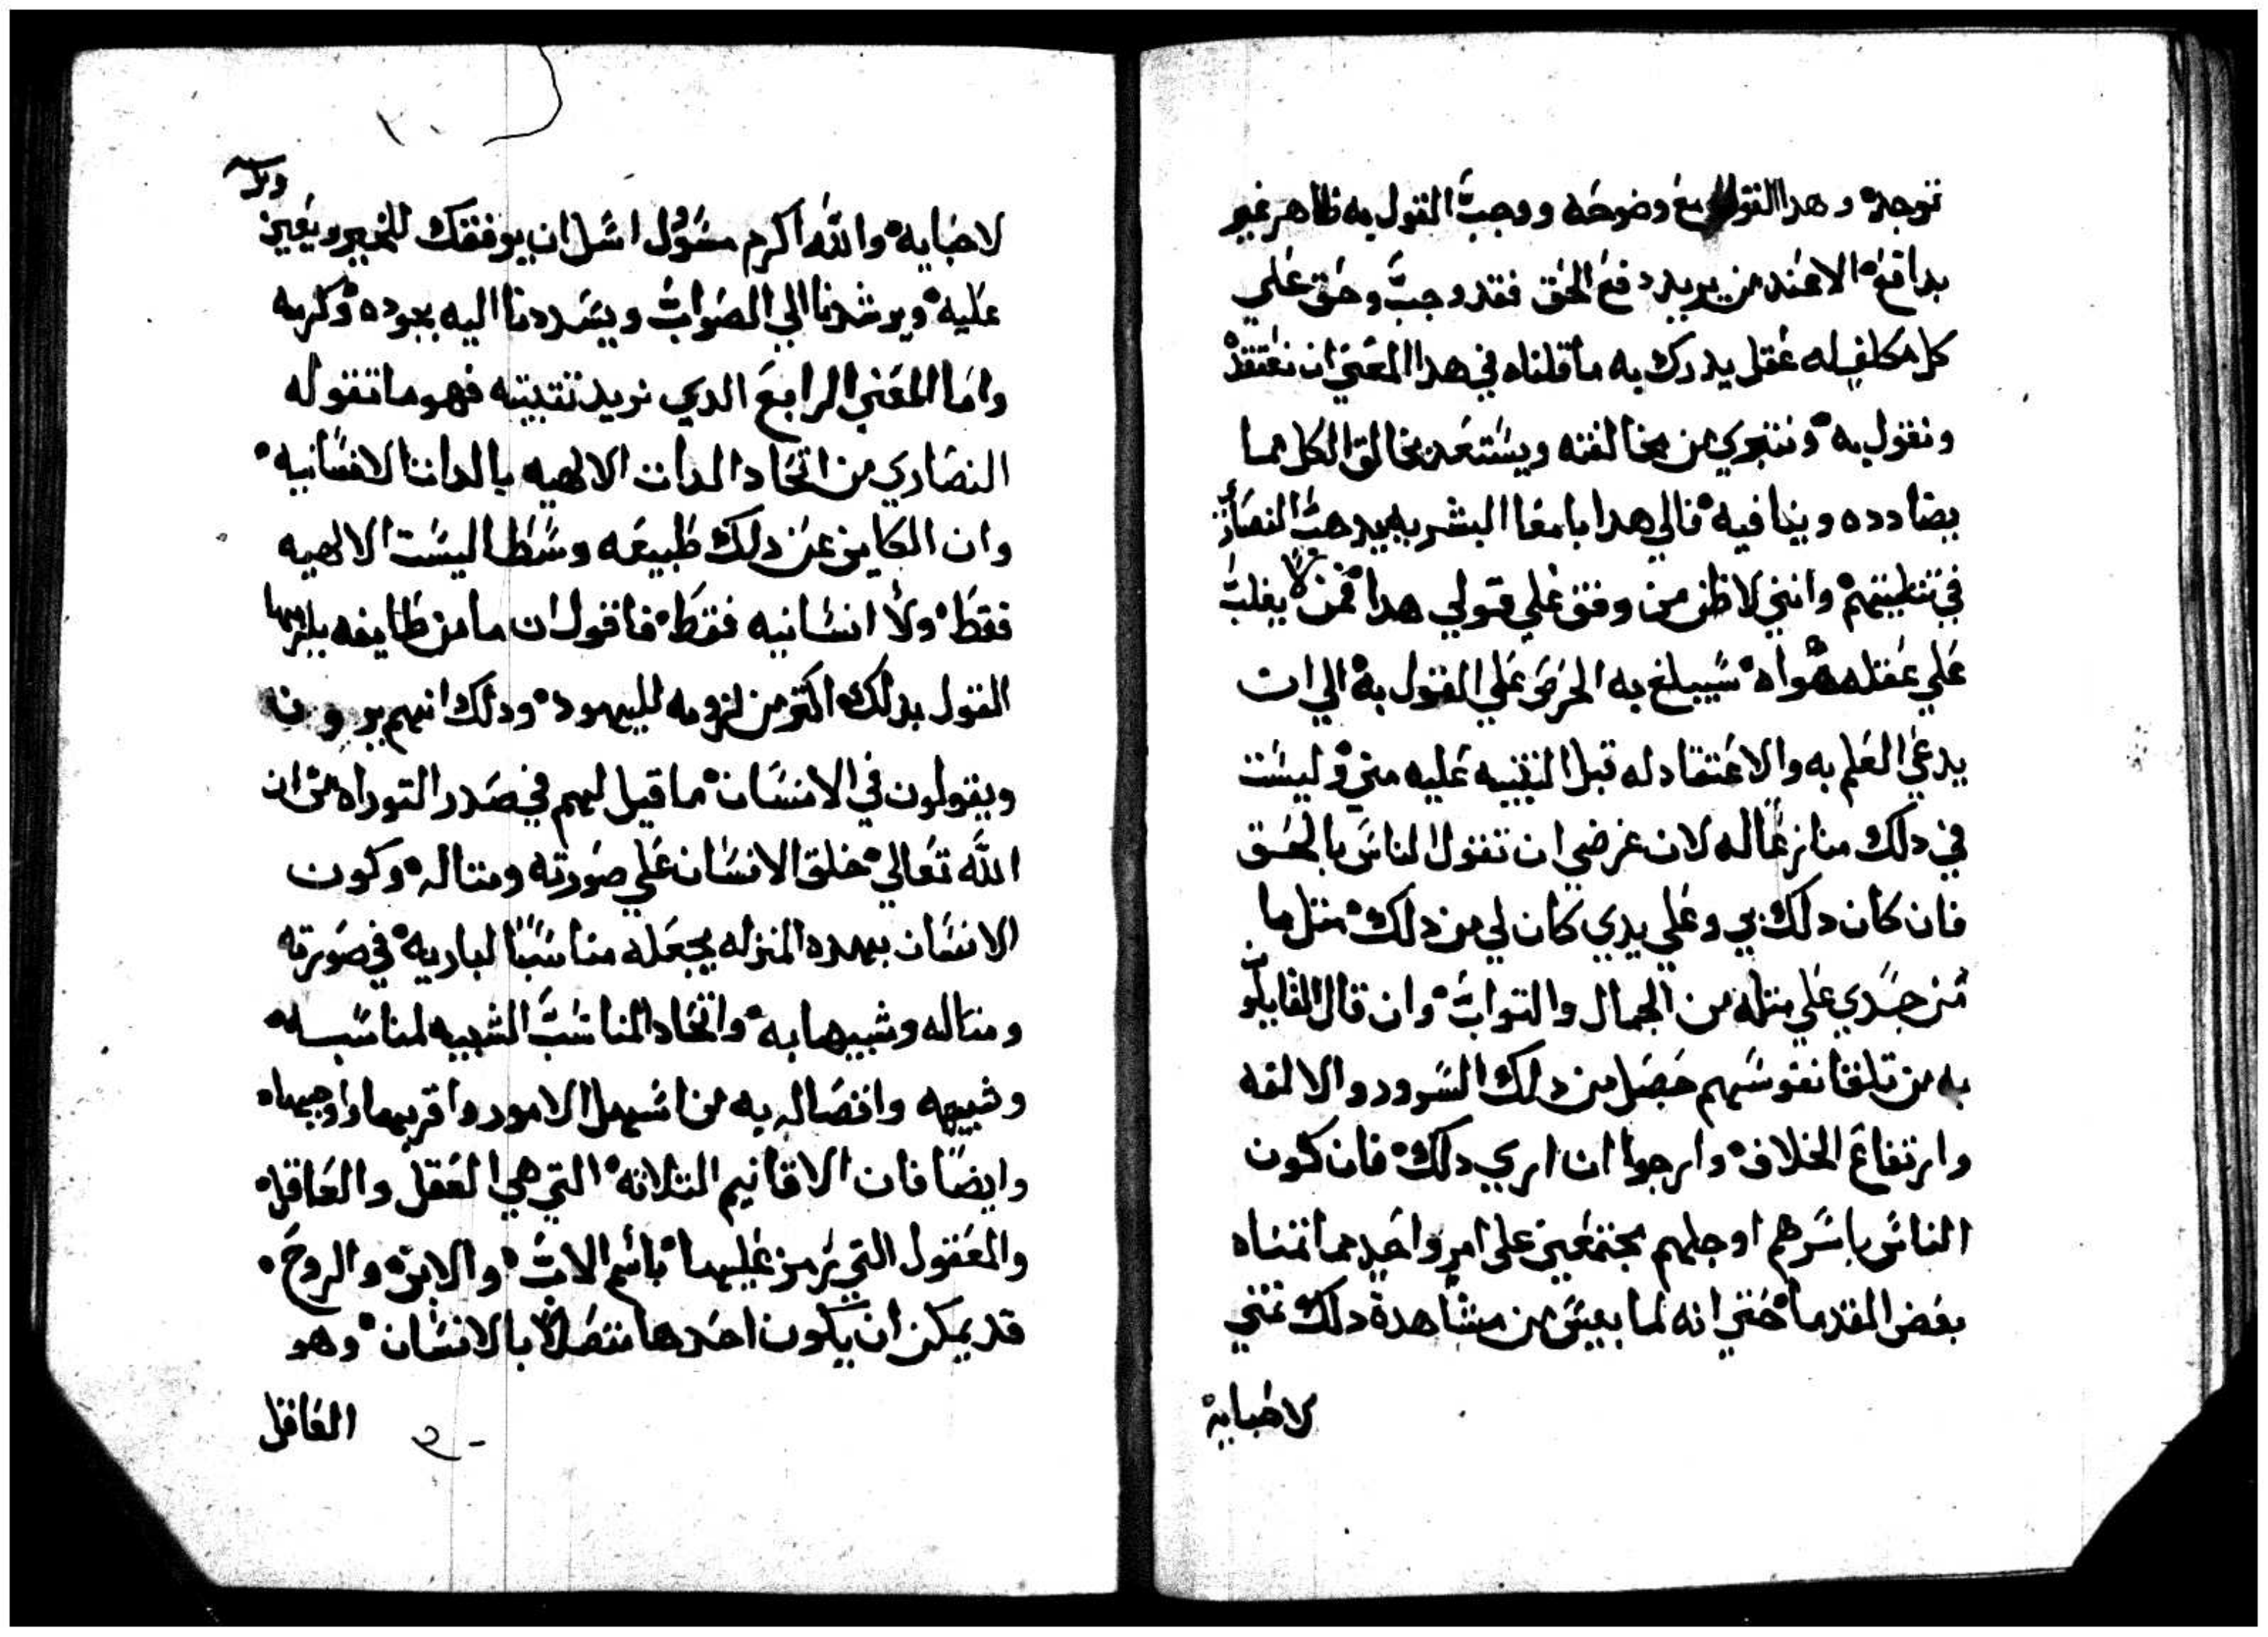 توجد وهدا القول مع وضوحه ووجب القول به ظاهر غير
بدافع الا عند من يريد دفع الحق فقد وجب وحق علي
كل مكلف له عقل يدرك به ما قلناه في هدا المعني ان نعتقده
ونقول به ونتبري من مخالفته ويستعد بخالق الكل مما
يضادده وينافيه فالي هدا يا معا البشر به يدهب النصاري
في تتليتهم وانني لاظن من وقف علي قولي هدا ممن لا يغلب
علي عقله هواه سيبلغ به الحرص علي القول به الي ان
يدعي العلم به والاعتقاد له قبل التنبيه عليه مني وليست
في دلك منازعًا له لان غرضي ان تقول الناس بالحق
فان كان دلك بي وعلي يدي كان لي من دلك متل ما
من جدي علي متله من الجمال والتواب وان قال القايلون
به من تلقا نفوسهم حصل من دلك السرور والالفه
وارتفاع الخلاف وارجوا ان اري دلك فان كون
الناس باسرهم او جلهم مجتمعين علي امر واحد مما اتمناه
بعض القدما حتي انه لما يىس من مشاهدة دلك تمني
لاحبايه
لاحبايه والله اكرم مسؤل اسل ان يوفقك للخير ويعين
عليه ويرشدنا الي الصواب ويسددنا اليه بجوده وكرمه
واما المعني الرابع الدي نريد تتبيته فهو ما تقوله
النصاري من اتحاد الدات الالهيه بالدات الانسانيه
وان الكاين عن دلك طبيعه وسطا ليست الالهيه
فقط ولا انسانيه فقط فاقول ان ما من طايفه يلزمها
القول بدلك اكتر من لزومه لليهود ودلك انهم يرون
ويقولون في الانسان ما قيل لهم في صدر التوراه من ان
الله تعالي خلق الانسان علي صورته ومتاله وكون
الانسان بهده المنزله يجعله مناسبًا لباريه في صورته
ومتاله وشبيها به واتحاد المناسب الشبيه لمناسبه
وشبيهه واتصاله به من اسهل الامور واقربها واوجبها
وايضًا فان الاقانيم التلاته التي هي العقل والعاقل
والمعقول التي يرمز عليها باسم الاب والابن والروح
قد يمكن ان يكون احدها متصلًا بالانسان وهو
العاقل